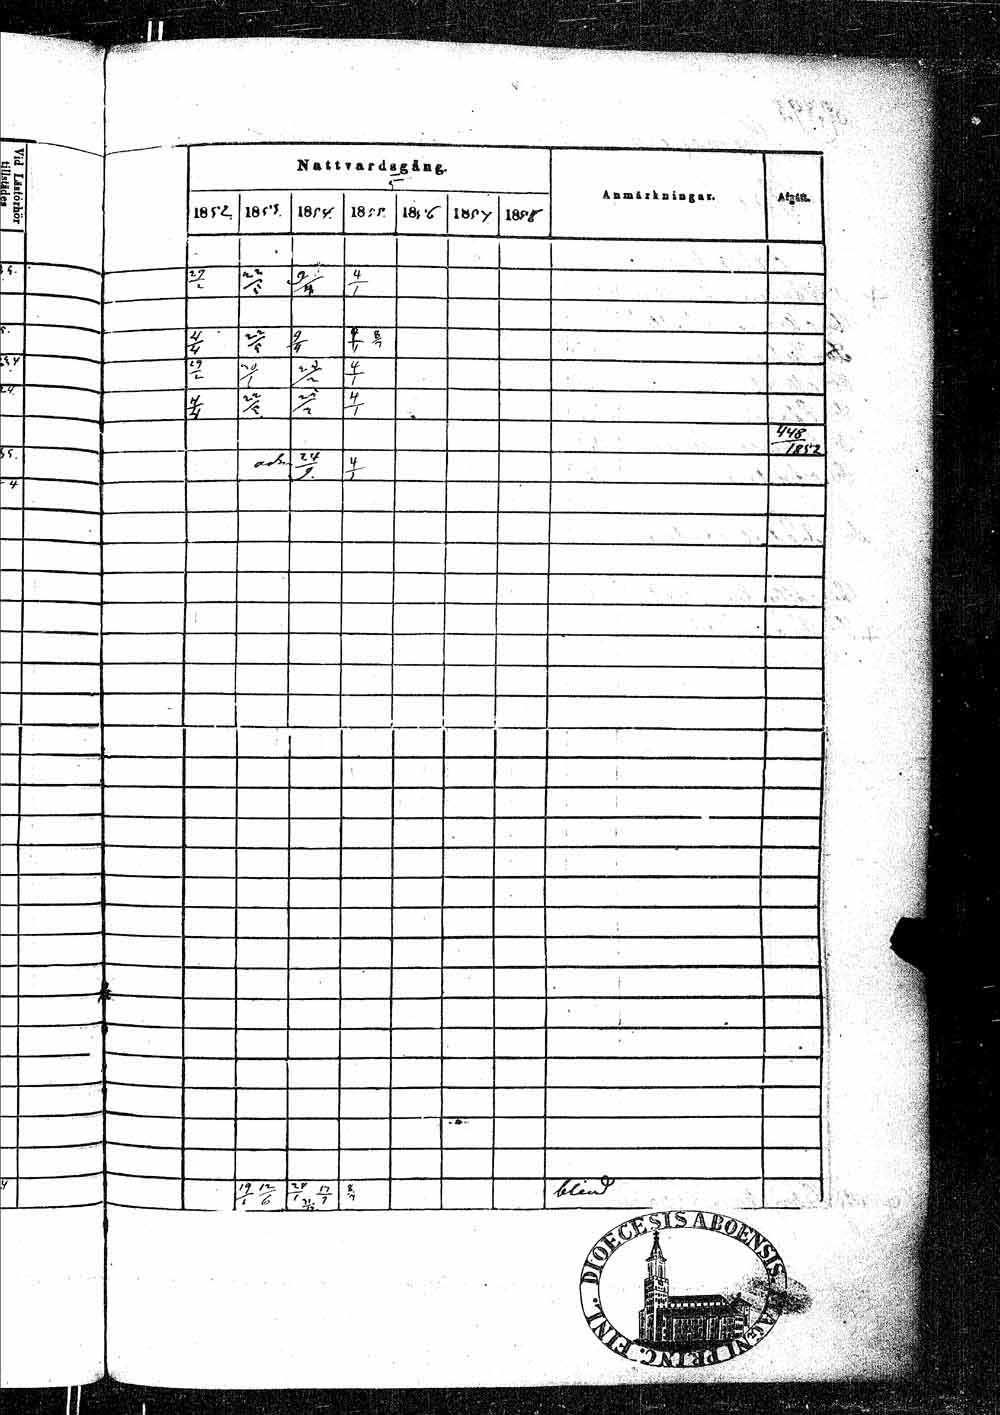 Vid Läsförhör
tillstädes
Nattvardsgång.
5
Anmärkningar.
Afgått.
1852. 1853. 1854. 1855. 1856 1857 1858
27/2 22/5 9/4 4/1
4/4 22/5 9/4 9/1 8/7
29/2 20/1 4/1
4/4 22/5 4/1
448/1852
adm 24/9. 4/1
19/1 12/6 28/1 17/9 8/7 blind
DIOECESIS ABOENSIS. MAGNI PRINC. FINL.